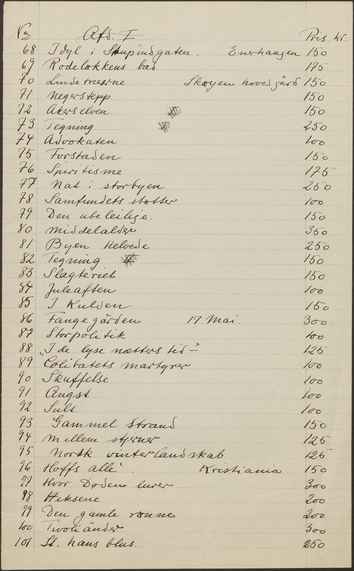 Afd. I Pris Kr.
68 Idyl i Stupindgaten. Enerhaugen 150
69 Rodeløkkens bad 175
70 Lindetrærne Skøyen hovedgård 150
71 Negerstepp 150
72 Akerselven 150
73 Tegning 250
74 Advokaten 100
75 Forstaden 150
76 Spiritisme 175
77 Nat i storbyen 250
78 Samfundets støtter 100
79 Den ubeleilige. 150
80 Middelalder 350
81 Byen Helvede 250
82 Tegning 150
83 Slagteriet 150
84 Juleaften 100
85 I Kulden 150
86 Fangegården 17 Mai. 300
87 Storpolitik 100
88 "I de lyse nætters tid" 125
89 Cølibatets martyrer 100
90 Skuffelse 100
91 Angst 100
92 Sult 100
93 Gammel Strand 150
94 Mellem styrner 125
95 Norsk vinterlandskab 125
96 Hoffs allé. Kristiania 150
97 Hvor Døden lurer 300
98 Heksene 200
99 Den gamle rønne 200
100 Tivoliånder 300
101 St. hans blus. 250